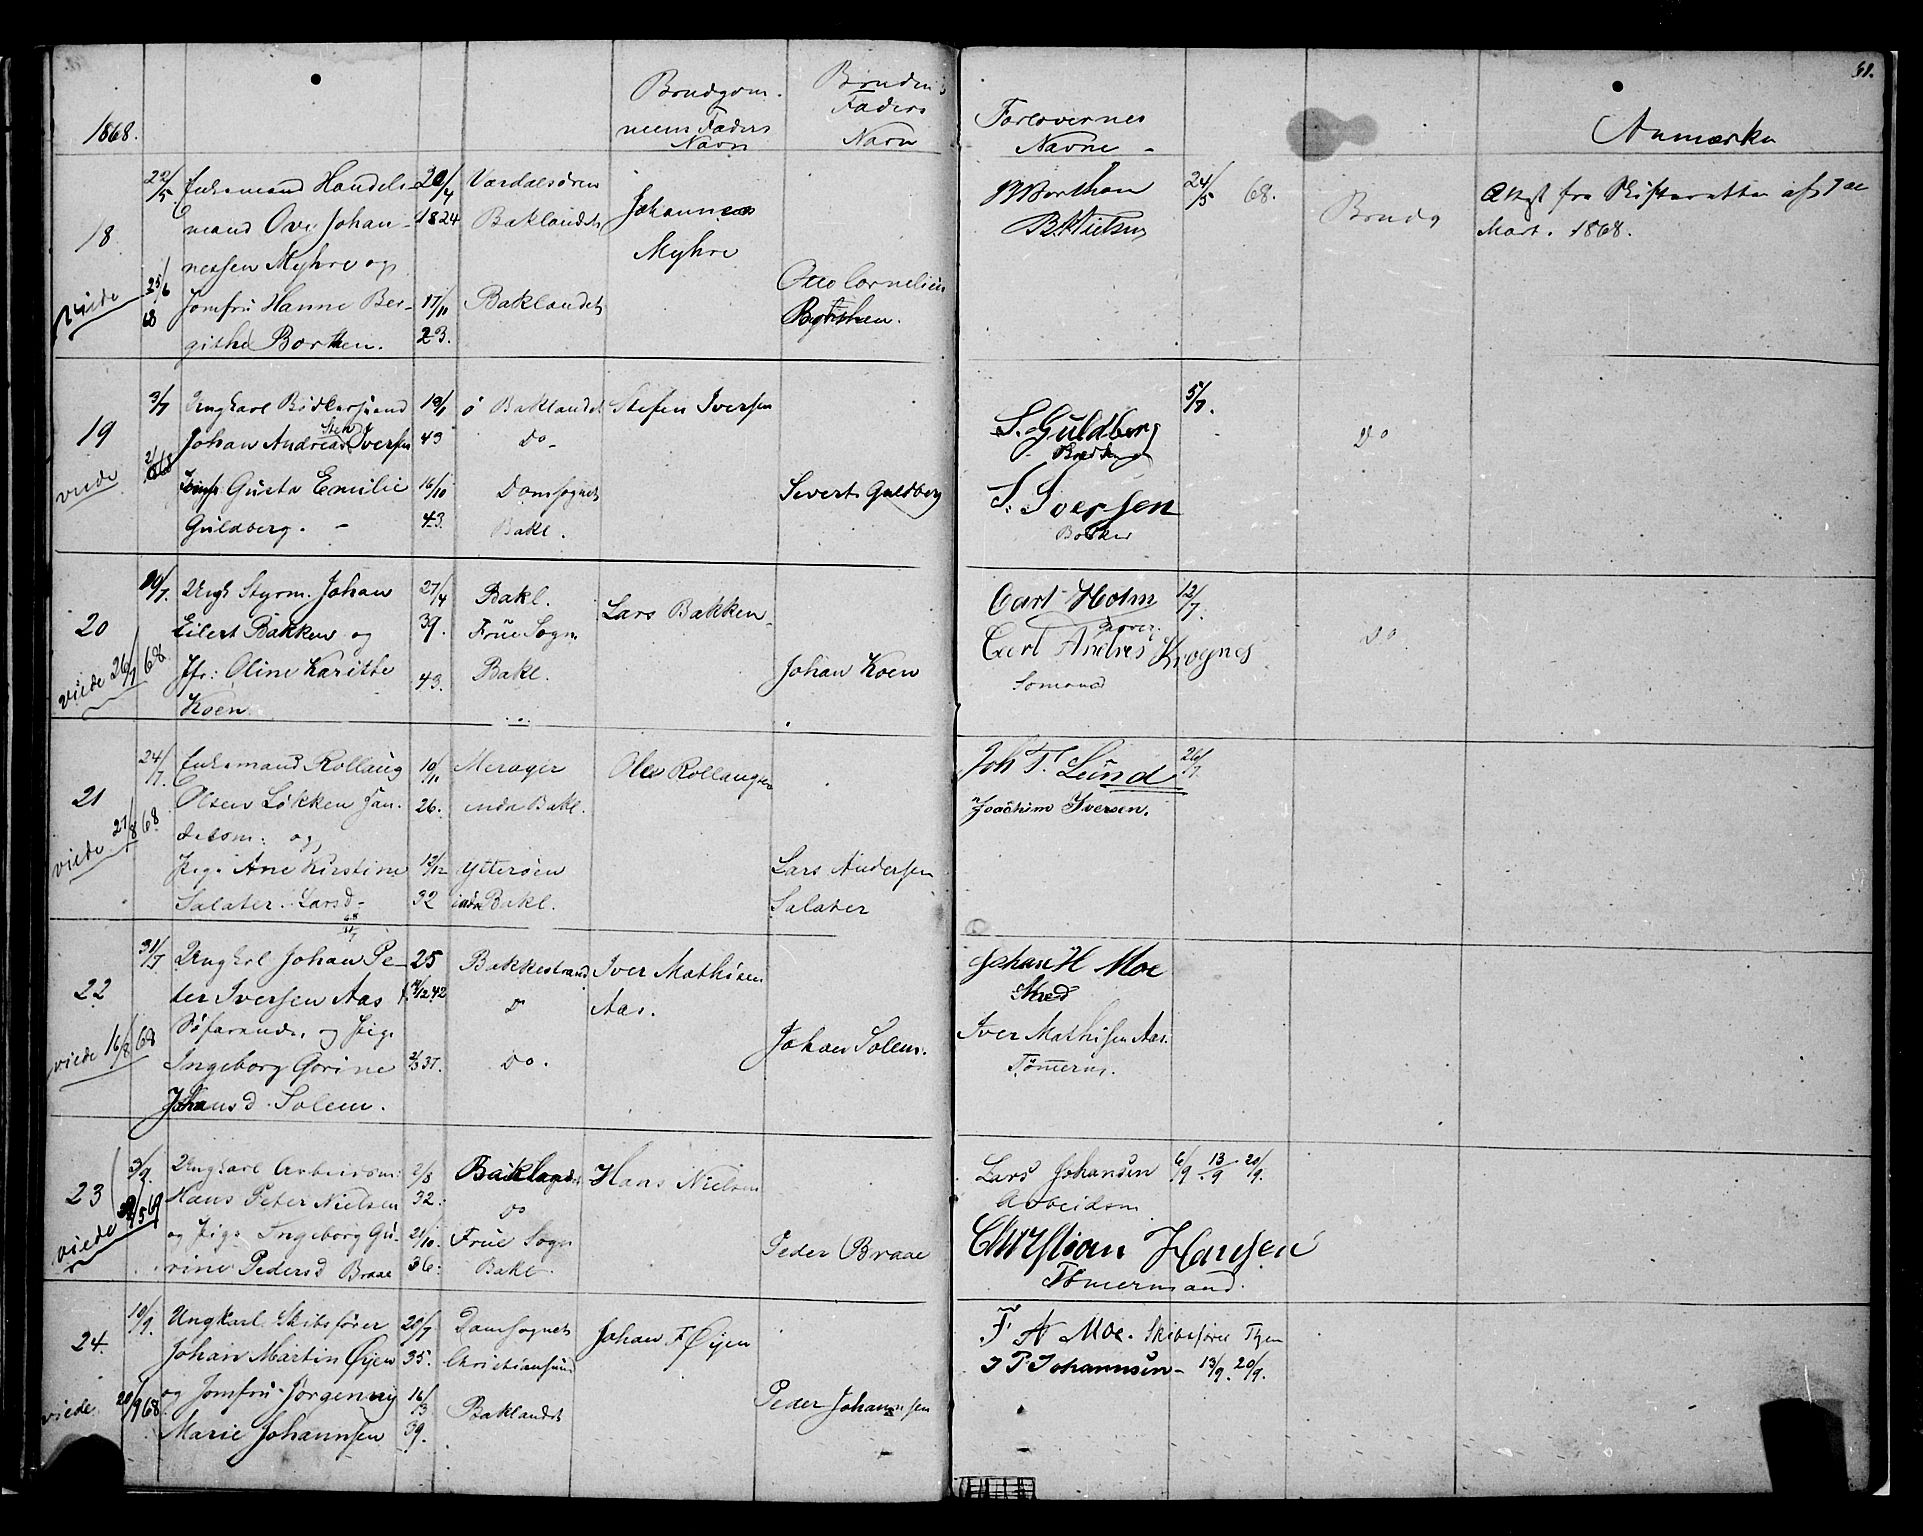 31.
1868.
Brudgom-
mens Faders
Navn
Brudens
Faders
Navn
Forlovernes
Navne -
Anmærkn
18
22/5
Enkemand Handels-
mand Ove Johan-
nessen Myhre og
Jomfru Hanne Ber-
githe Borthen.
viede 25/6 68
20/4
1824
17/11
23.
Værdalsøren
Baklandet
Baklandet
Johannes
Myhre
Otto Cornelius
Borthen.
Borthen
B. Nielsen
24/5 68.
Brudg
Attest fra Skifteretten af 7de
Mart. 1868.
19
viede
3/7
Ungkarl Bødkersvend
Johan Andreas Iversen
Sten
Jomfr Gusta Emilie
Guldberg. -
43
16/10
43.
Baklandet
Do -
Domsognet
Bakl.
Stefen Iversen
Sivert Guldberg
S. Guldberg
S. Iversen
Bødker
5/7.
Do
20
viede 26/7 68
10/7.
Ungk Styrm. Johan
Eilert Bakken og
Jfr: Oline Karithe
Koen.
27/4
39.
43.
Bakl.
Frue Sogn
Bakl.
Lars Bakken
Johan Koen
Carl Holm
Carl Andres Krognes
Sømand
12/7.
Do
21
viede 21/8 68
24/7.
Enkemand Rollaug
Olsen Løkken Han-
delsm: og
Pige Ane Kirstine
Salater. Larsd-
19/11
26.
12/12
32
Merager
inds Bakl.
Ytterøen
inds Bakl.
Ole Rollaugsen
Lars Andersen
Salater
Joh T. Lund
Joachim Iversen.
26/7.
22
viede 16/8 68
31/7
Ungkrl Johan Pe-
ter Iversen Aas
Søfarende, og Pige
Ingeborg Gorine
Johansd. Solem.
25
2/3 37.
Bakkestrand
D
Do.
Iver Mathisen
Aas.
Johan Solem.
Johan H Moe
Smed
Iver Mathisen Aas.
Tømerm.
23
viede
3/9.
Ungkarl Arbeidsm:
Hans Peter Nielsen
og Pige Ingeborg Gu-
rine Pedersd Braae
2/8
32:
21/10.
36:
Baklandet
Do
Frue Sogn
Bakl.
Hans Nielsen
Peder Braae
Lars Johansen
Arbeidsm.
Christian Hansen
Tømermand.
6/9 13/9 20/9.
24.
viede 20/9 68
10/9.
Ungkarl Skibsfører
Johan Martin Øyen
og Jomfru Jørgenny
Marie Johannsen
20/7
35.
16/3
39.
Domsognet
Christiansund
Baklandet
Johan F Øyen
Peder Johannsen
F A Moe. Skibsfører
J P Johannsen - 13/9. 20/9.